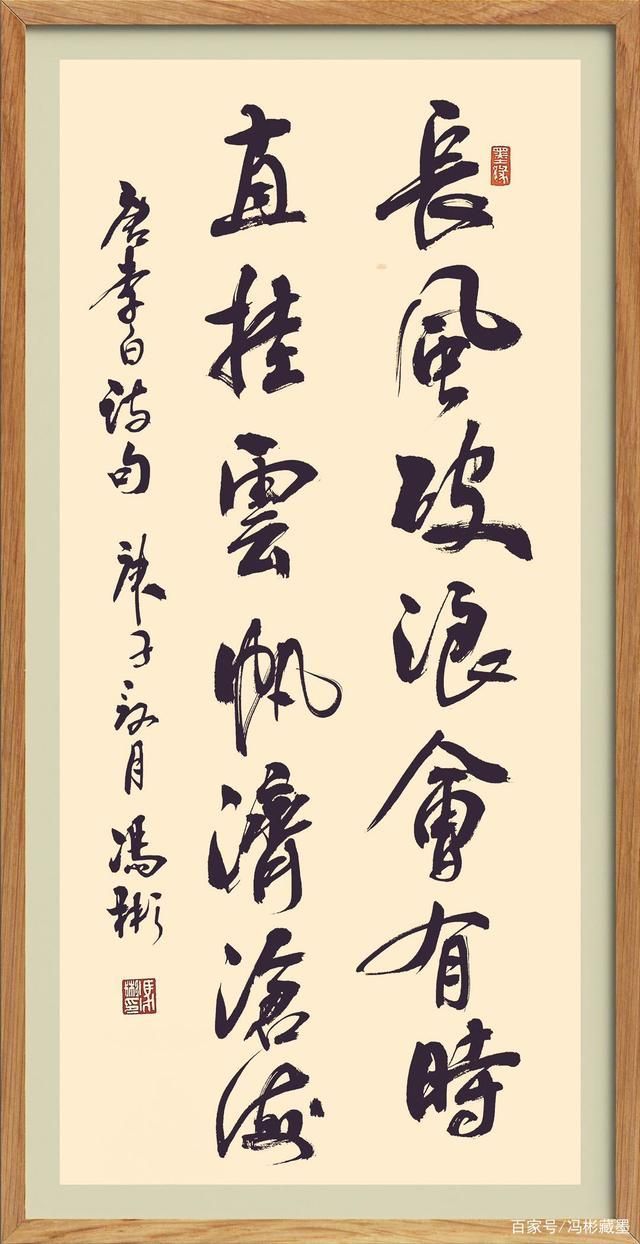 長風破浪會有時
直挂雲帆濟滄海
唐李白詩句 庚子敘月 馮彬
墨缘
馮彬印
百家号/冯彬藏墨